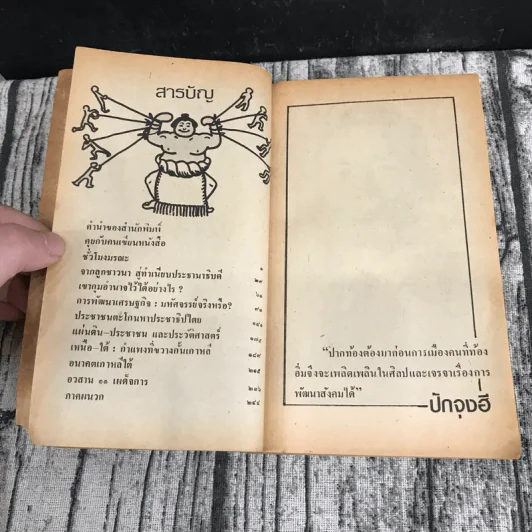 สารบัญ
คำนำของสำนักพิมพ์
คุยกับคนเขียนหนังสือ
ชั่วโมงมรณะ ๑
จากลูกชาวนา สู่ทำเนียบประธานาธิบดี ๒๘
เขากุมอำนาจไว้ได้อย่างไร ?
การพัฒนาเศรษฐกิจ : มหัศจรรย์จริงหรือ?
ประชาชนตะโกนหาประชาธิปไตย
แผ่นดิน-ประชาชน และประวัติศาสตร์
เหนือ-ใต้ : กำแพงที่ขวางกั้นเกาหลี ๑๘๙
อนาคตเกาหลีใต้ ๒๑๕
อวสาน ๑๑ เผด็จการ ๒๓๖
ภาคผนวก ๒๔๔
"ปากท้องต้องมาก่อนการเมืองคนที่ท้อง
อิ่มจึงจะเพลิดเพลินในศิลปและเจรจาเรื่องการ
พัฒนาสังคมได้"
ปักจุงฮี